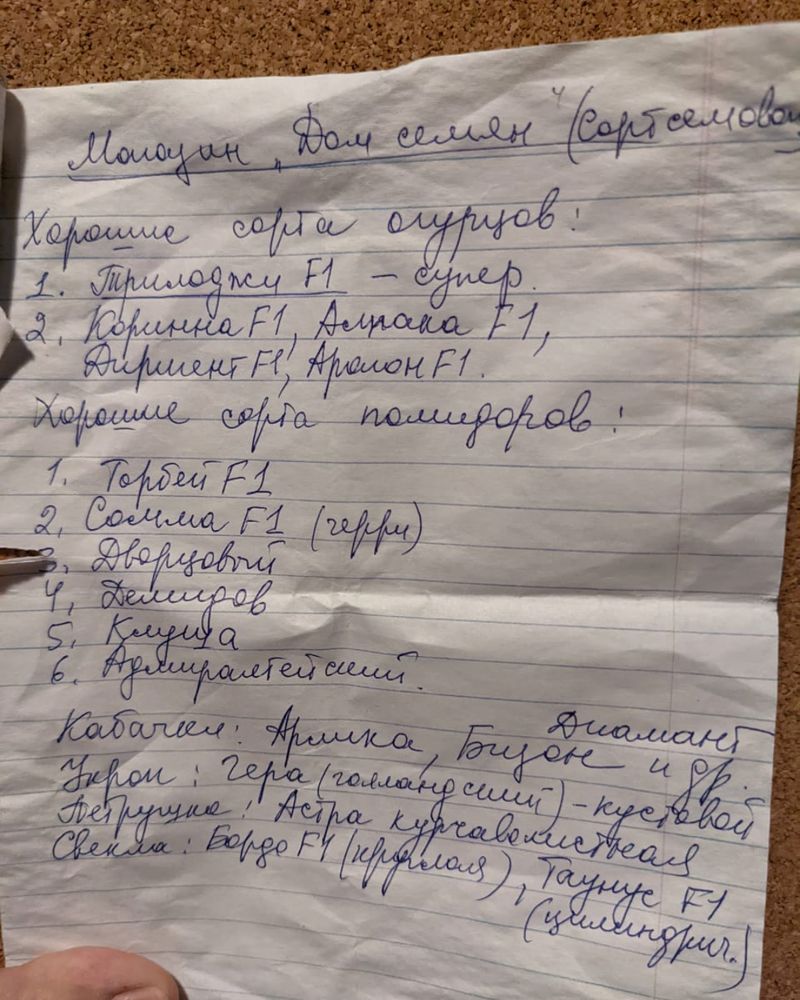 Магазин „Дом семян" (Сортсемовощ
Хорошие сорта огурцов:
1. Трилоджи F1 – супер.
2. Коринна F1, Алпака F1,
Дирмент F1, Аролон F1.
Хорошие сорта помидоров:
1. Торбей F1
2. Сомма F1 (черри)
3. Дворцовый
4. Демидов
5. Клуша
6. Адмиралтейский.
Кабачки: Арлика, Бизон и др.
Диамант
Укроп: Гера (голландский) – кустовой
Петрушка: Астра курчаволистная
Свекла: Бордо F1 (круглая), Таунус F1
(цилиндрич.)